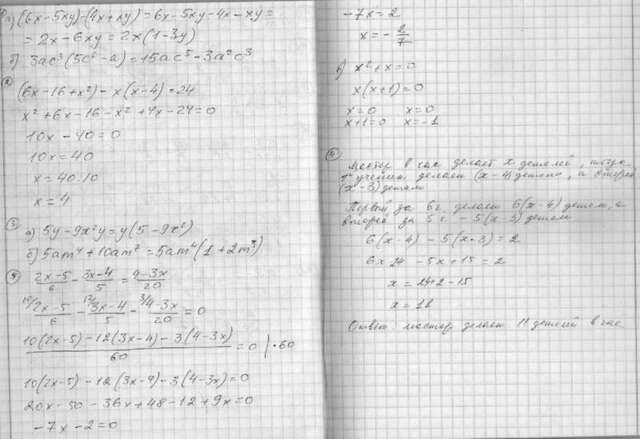 а) (6х-5ху)-(4х+ху)=6х-5ху-4х-ху=
=2х-6ху=2х(1-3у)
б) 3ас³(5с²-а)=15ас⁵-3а²с³
2
(6х-16+х²)-х(х-4)=24
х²+6х-16-х²+4х-24=0
10х-40=0
10х=40
х=40:10
х=4
3
а) 5у-9х²у=у(5-9х²)
б) 5am⁴+10am⁷=5am⁴(1+2m³)
2x-5/6-3x-4/5=4-3x/20
10/2x-5/6-12/3x-4/5-3/4-3x/20=0
10(2x-5)-12(3x-4)-3(4-3x)/60=0 |·60
10(2x-5)-12(3x-4)-3(4-3x)=0
20x-50-36x+48-12+9x=0
-7x-2=0
-7x=2
x=-2/7
x²+x=0
x(x+1)=0
x=0 x=0
x+1=0 x=-1
4
Мастер в час делает х деталей, тогда
1 ученик делает (х-4) детали, а второй
(х-3) детали
Первый за 6ч. делает 6(х-4) детали, а
второй за 5ч. - 5(х-3) детали
6(х-4)-5(х-3)=2
6х-24-5х+15=2
х=24+2-15
х=11
Ответ мастер делает 11 деталей в час